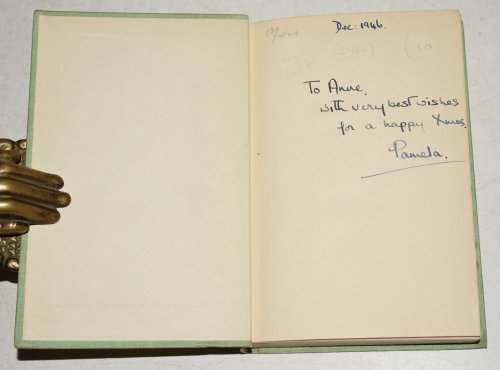 Dec: 1946.
(2464)
To Anne,
with very best wishes
for a happy Xmas.
Pamela.